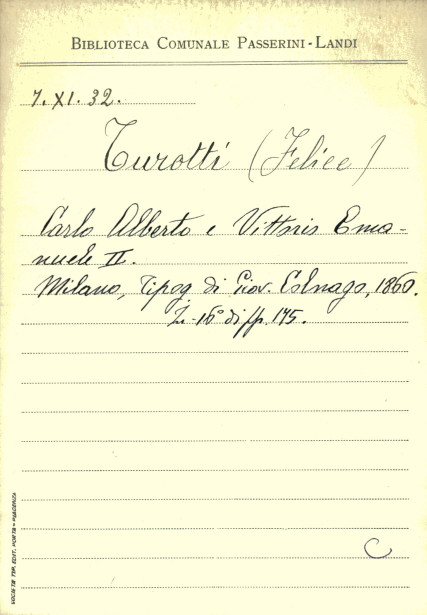 BIBLIOTECA COMUNALE PASSERINI-LANDI
7. XI. 32.
Turotti (Felice)
Carlo Alberto e Vittorio Ema-
nuele II.
Milano, Tipog. di Giov. Colnago, 1860.
In-16° di pp. 175.
C
SOCIETÀ TIP. EDIT. PORTA - PIACENZA